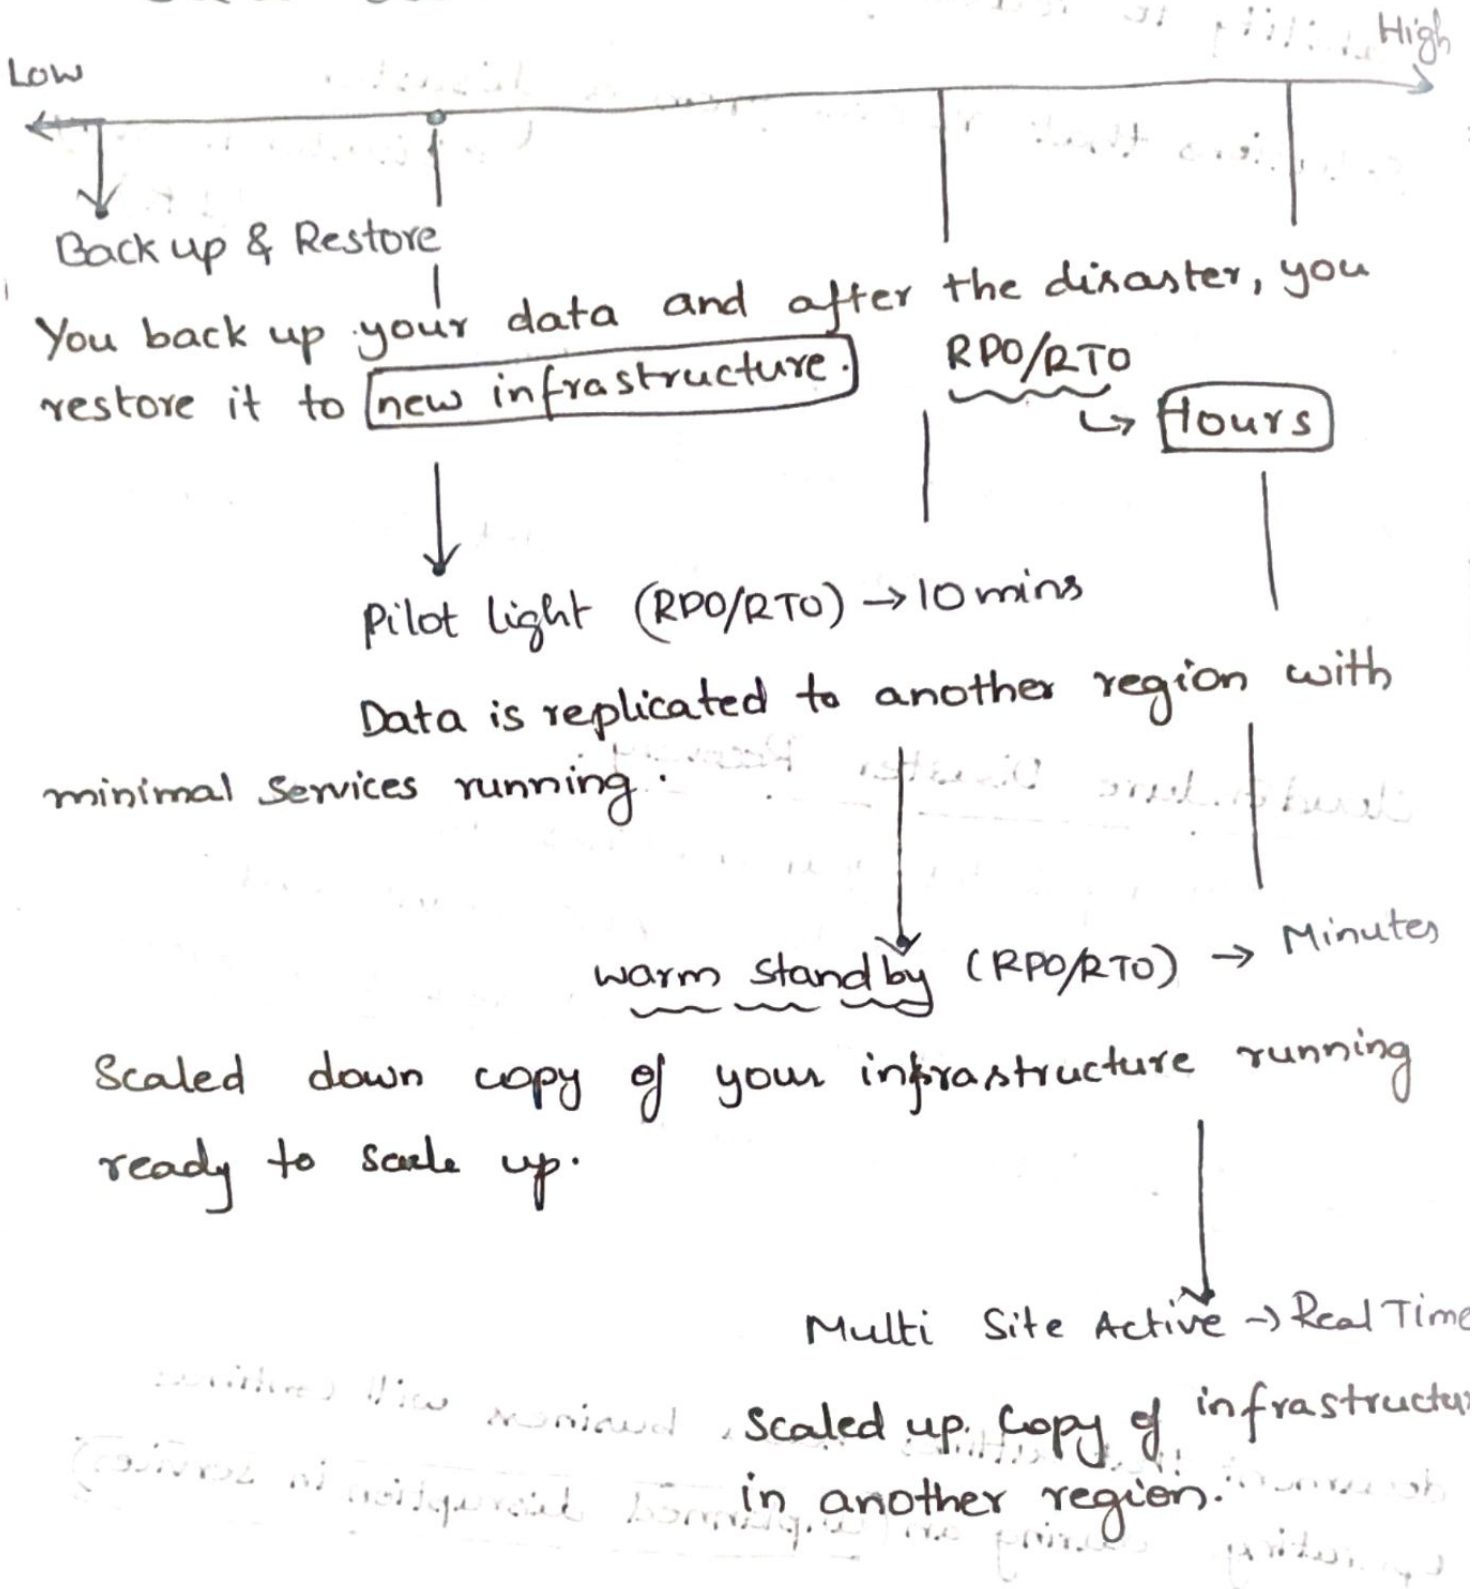 Low
High
Back up & Restore
You back up your data and after the disaster, you
restore it to new infrastructure.
RPO/RTO
↳ Hours
Pilot light (RPO/RTO) → 10 mins
Data is replicated to another region with
minimal services running.
warm standby (RPO/RTO) → Minutes
Scaled down copy of your infrastructure running
ready to scale up.
Multi Site Active → Real Time
Scaled up copy of infrastructur
in another region.